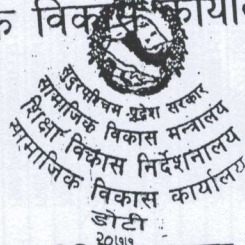 क विकास कार्या
सुदुरपश्चिम प्रदेश सरकार
सामाजिक विकास मन्त्रालय
शिक्षा विकास निर्देशनालय
सामाजिक विकास कार्यालय
डोटी
२०७७